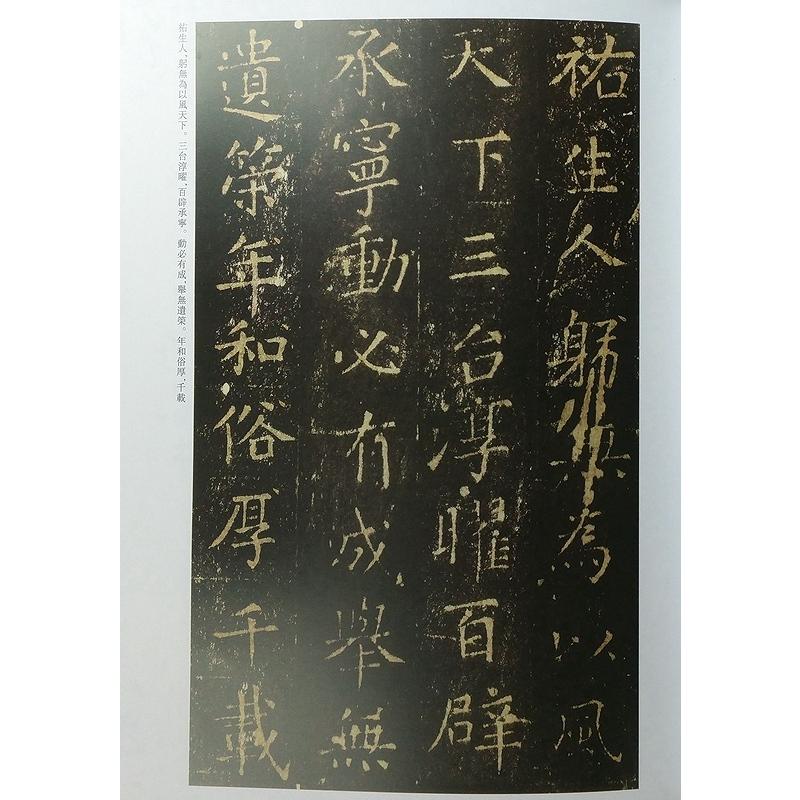 祐生人躬無為以風
天下三台淳曜百辟
承寧動必有成舉無
遺筞年和俗厚千載
祐生人、躬無為以風天下。三台淳曜、百辟承寧。動必有成、舉無遺筞。年和俗厚、千載